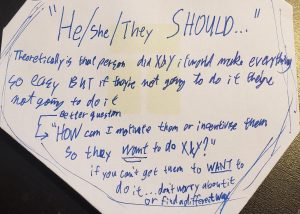 "He/She/They SHOULD..."
Theoretically is that person did X&Y it would make everything
so easy BUT if they're not going to do it they're
not going to do it
Better question
"HOW can I motivate them or incentivise them
so they want to do X&Y?"
if you can't get them to WANT to
do it... don't worry about it
or find a different way